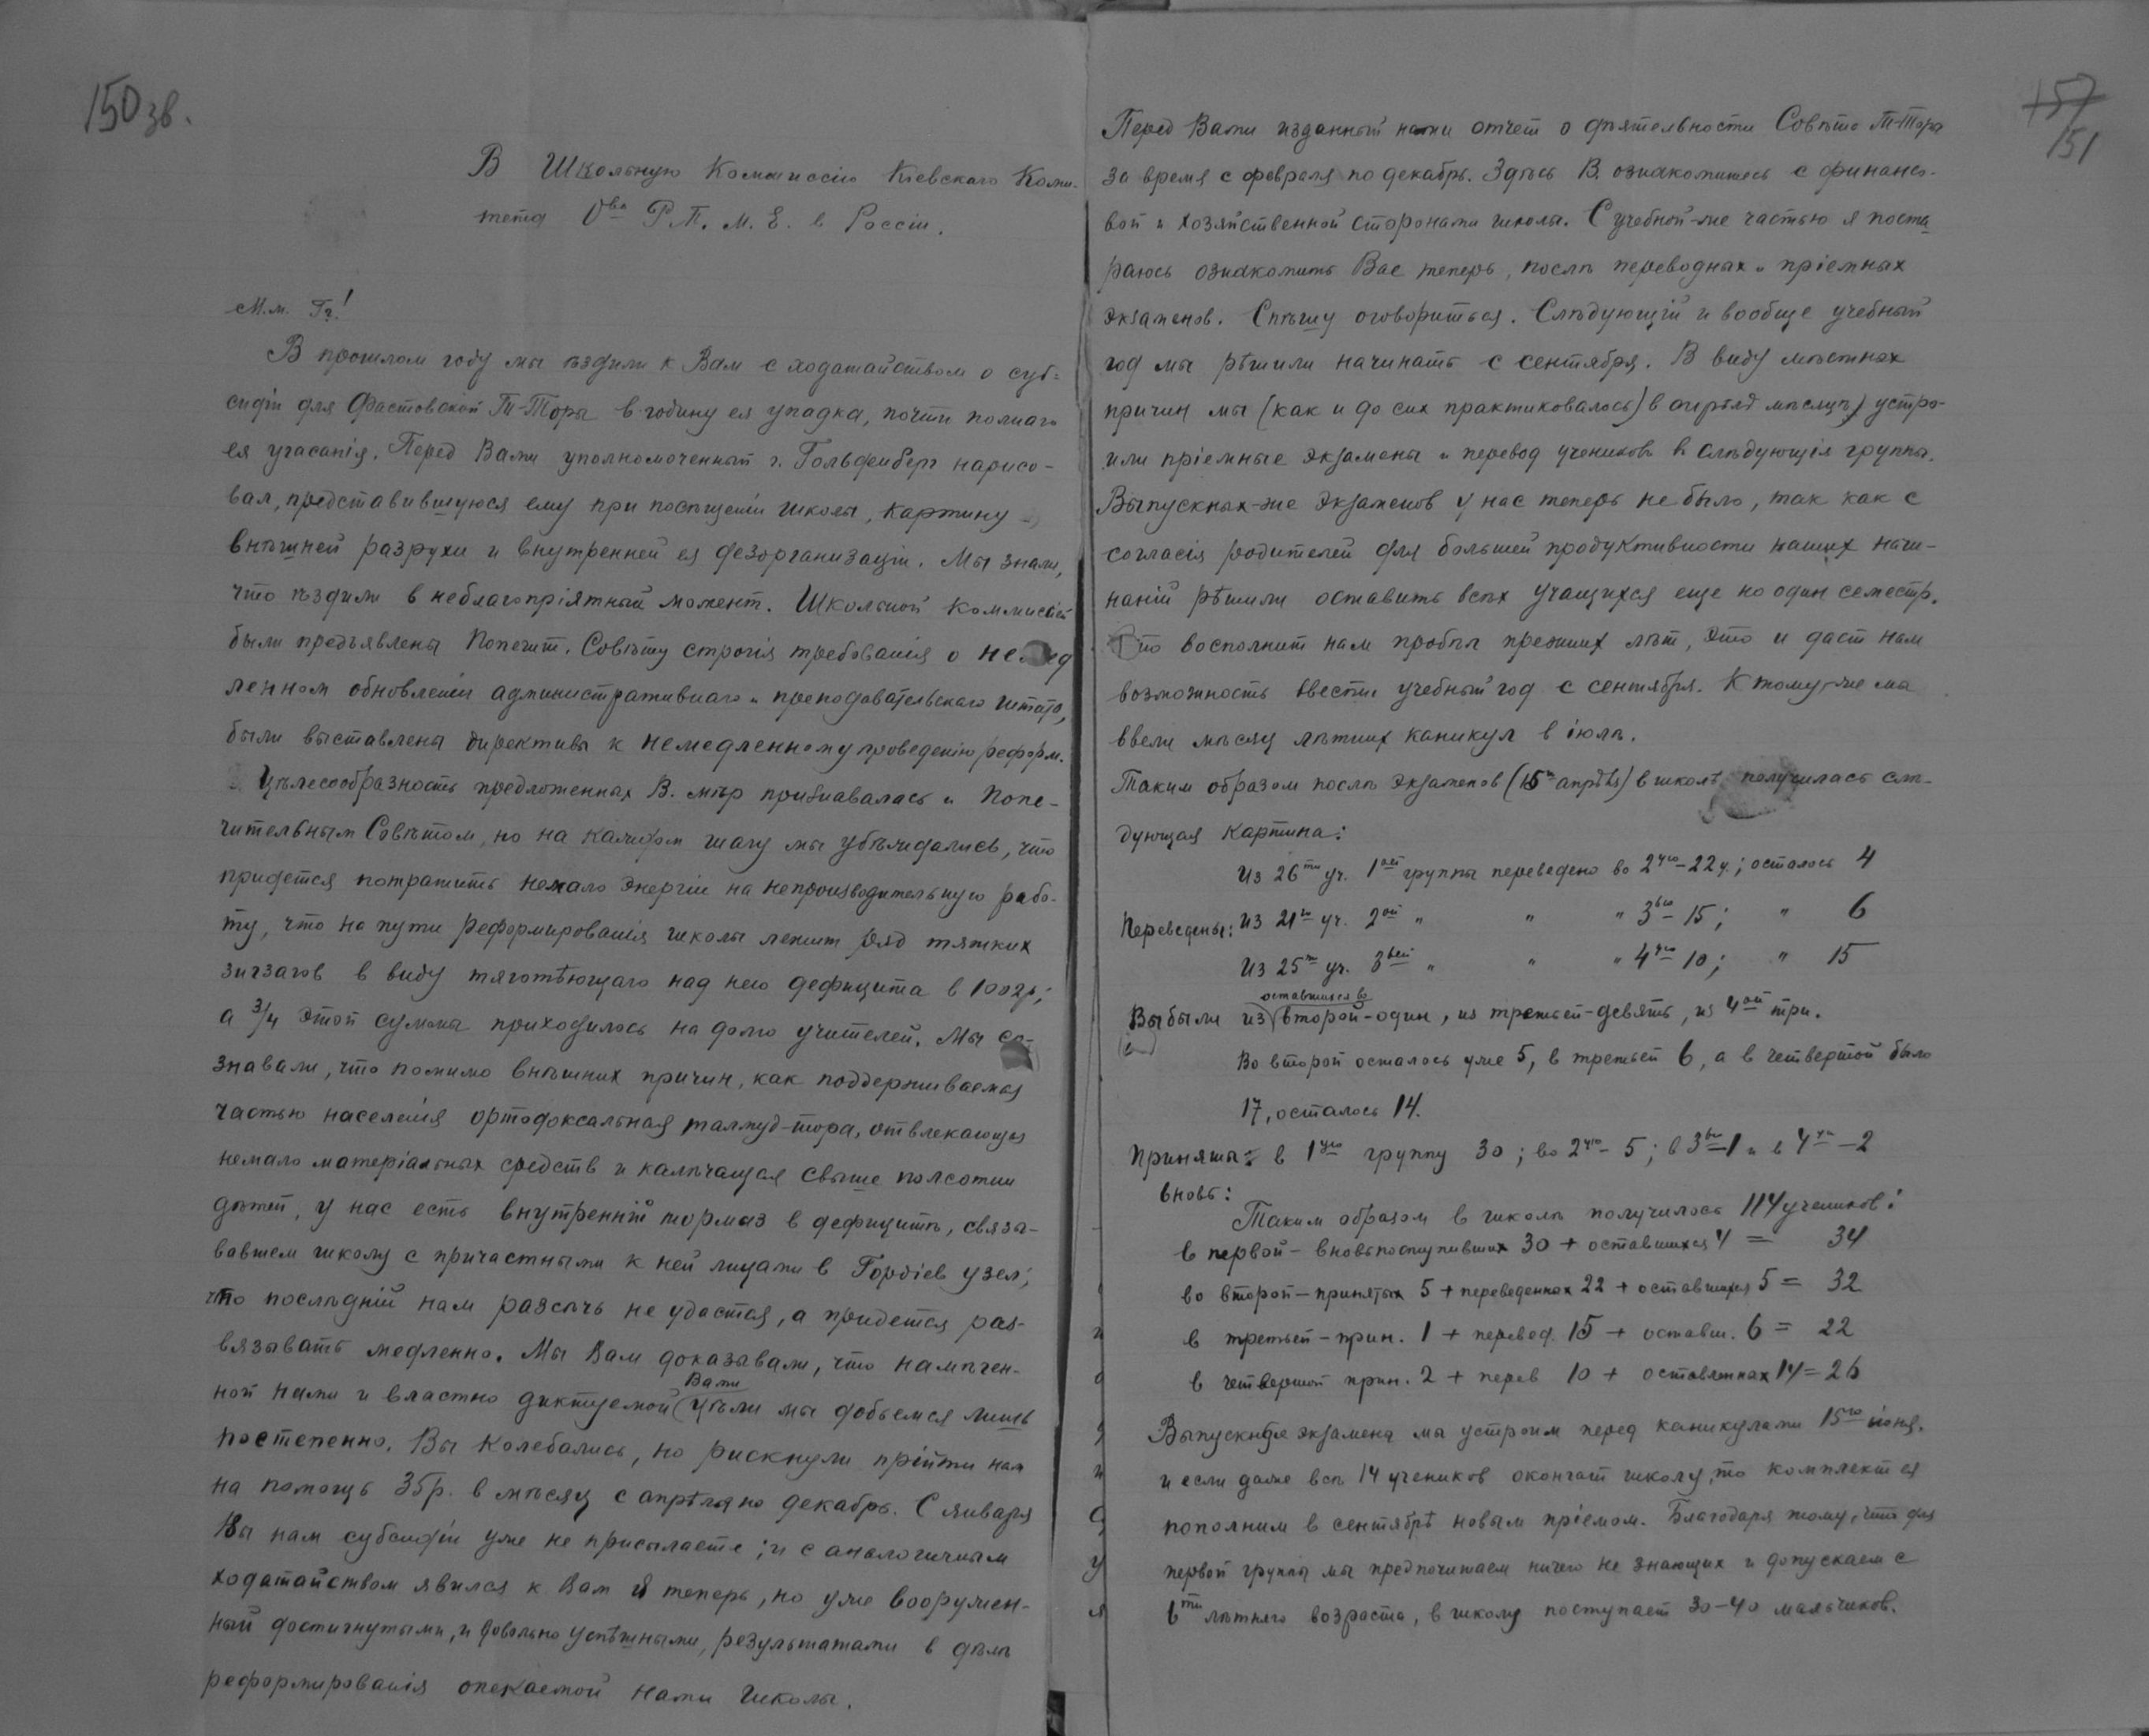 150 зв.
В Школьную Коммиссію Кіевскаго Коми-
тета О-ва Р. П. М. Е. в Россіи.
М.м. Гг.!
В прошлом году мы ѣздили к Вам с ходатайством о суб-
сидіи для Фастовской Т-Торы в годину ея упадка, почти полнаго
ея угасанія. Перед Вами уполномоченный г. Гольденберг нарисо-
вал, представившуюся ему при посѣщеніи школы, картину
внѣшней разрухи и внутренней ея дезорганизаціи. Мы знали,
что ѣздили в неблагопріятный момент. Школьной Коммиссіей
были предъявлены Попечит. Совѣту строгія требованія о немед
ленном обновленіи административнаго и преподавательскаго штата,
были выставлены директивы к немедленному проведенію реформ.
Цѣлесообразность предложенных В. мѣр признавалась и Попе-
чительным Совѣтом, но на каждом шагу мы убѣждались, что
придется потратить немало энергіи на непроизводительную рабо-
ту, что на пути реформированія школы лежит ряд тяжких
зигзагов в виду тяготѣющаго над нею дефицита в 1002р;
а 3/4 этой суммы приходилось на долю учителей. Мы со-
знавали, что помимо внѣшних причин, как поддерживаемая
частью населенія ортодоксальная талмуд-тора, отвлекающая
немало матеріальных средств и калѣчащая свыше полсотни
дѣтей, у нас есть внутренній тормаз в дефицитѣ, связа-
вавшем школу с причастными к ней лицами в Гордіев узел;
что послѣдній нам разсѣчь не удастся, а придется раз-
вязывать медленно. Мы Вам доказывали, что намѣчен-
ной нами и властно диктуемой Вами цѣли мы добьемся лишь
постепенно. Вы колебались, но рискнули прійти нам
на помощь 35р. в мѣсяц с апрѣля по декабрь. С января
Вы нам субсидіи уже не присылаете; и с аналогичным
ходатайством явился к Вам я теперь, но уже вооружен-
ный достигнутыми, и довольно успѣшными, результатами в дѣлѣ
реформированія опекаемой нами школы.
157
151
Перед Вами изданный нами отчет о дѣятельности Совѣта Т-Тора
за время с февраля по декабрь. Здѣсь В. ознакомитесь с финансо-
вой и хозяйственной сторонами школы. С учебной-же частью я поста
раюсь ознакомить Вас теперь, послѣ переводных и пріемных
экзаменов. Спѣшу оговориться. Слѣдующій и вообще учебный
год мы рѣшили начинать с сентября. В виду мѣстных
причин мы (как и до сих практиковалось) в апрѣлѣ мѣсяцѣ устро-
или пріемные экзамены и перевод учеников в слѣдующія группы.
Выпускных-же экзаменов у нас теперь не было, так как с
согласія родителей для большей продуктивности наших начи-
наній рѣшили оставить всѣх учащихся еще на один семестр.
Это восполнит нам пробѣл прежних лѣт, это и даст нам
возможность ввести учебный год с сентября. К тому-же мы
ввели мѣсяц лѣтних каникул в іюлѣ.
Таким образом послѣ экзаменов (15 апрѣля) в школѣ получилась слѣ-
дующая картина:
Из 26ти уч. 1ой группы переведено во 2ую-22 у.; осталось 4
Переведены: из 21го уч. 2ой " " " 3ью 15; " 6
Из 25ти уч. 3ьей " " " 4ую 10; " 15
Выбыли из оставшихся во второй-один, из третьей-девять, из 4ой три.
Во второй осталось уже 5, в третьей 6, а в четвертой было
17, осталось 14.
Приняты вновь: в 1ую группу 30; во 2ую- 5; в 3ью-1 и в 4ую-2
Таким образом в школѣ получилось 114 учеников:
в первой - вновь поступивших 30 + оставшихся 4 = 34
во второй - принятых 5 + переведенных 22 + оставшихся 5 = 32
в третьей - прин. 1 + перевед. 15 + оставш. 6 = 22
в четвертой прин. 2 + перев 10 + оставленных 14 = 26
Выпускные экзамены мы устроим перед каникулами 15го іюня.
и если даже всѣ 14 учеников окончат школу, то комплект ея
пополним в сентябрѣ новым пріемом. Благодаря тому, что для
первой группы мы предпочитаем ничего не знающих и допускаем с
6ти лѣтняго возраста, в школу поступает 30-40 мальчиков.